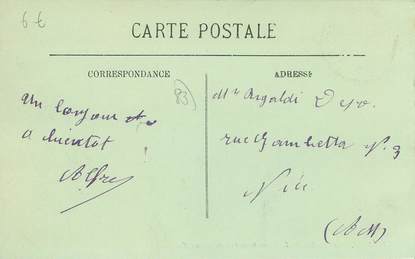 6 €
CARTE POSTALE
CORRESPONDANCE
ADRESSE
83
un bonjour et
a bientot
Alfred
Mr Rigaldi
rue Gambetta N. 3
Nice
(AM)